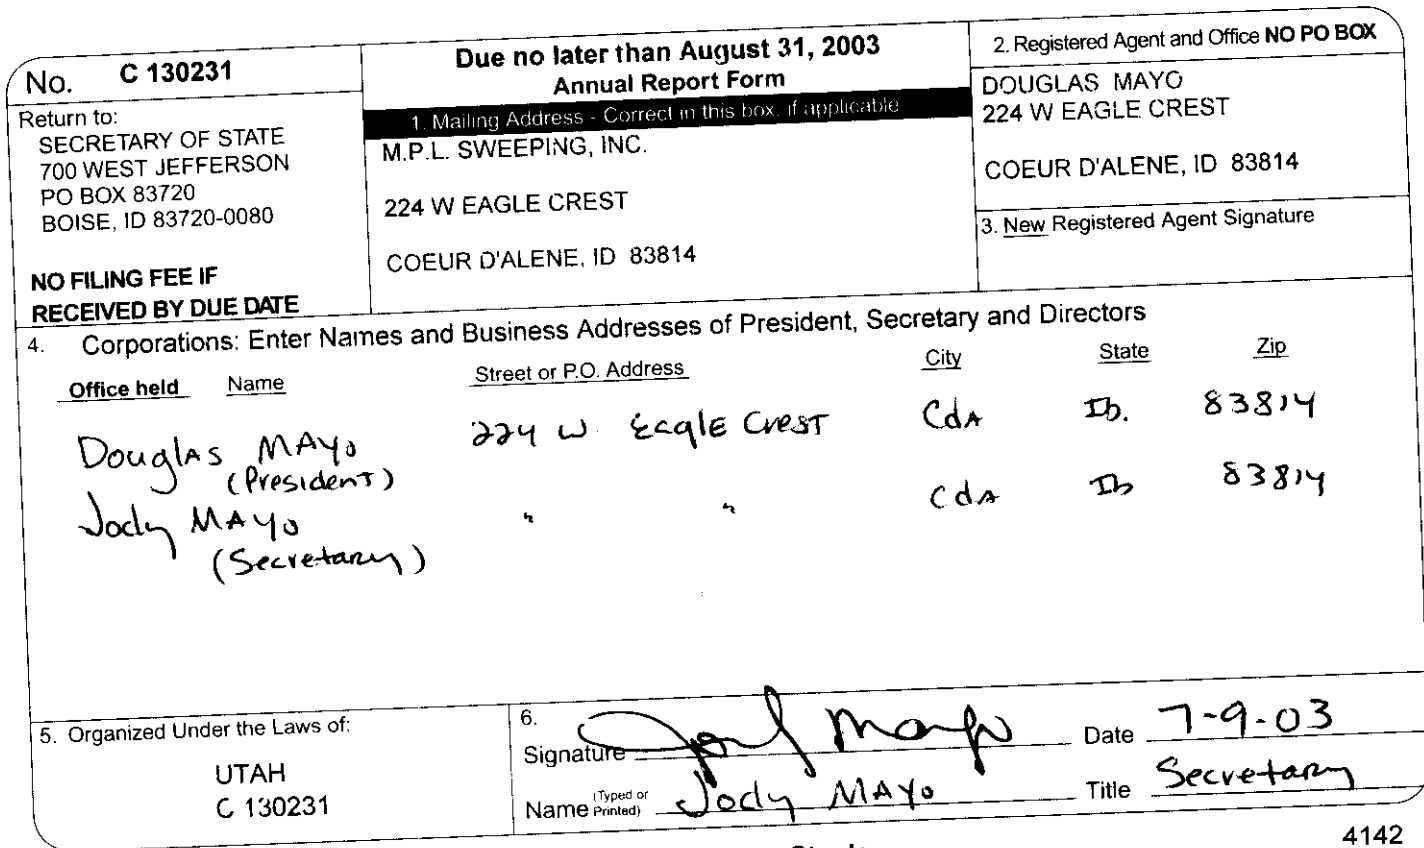 No. C 130231
Return to:
SECRETARY OF STATE
700 WEST JEFFERSON
PO BOX 83720
BOISE, ID 83720-0080
NO FILING FEE IF
RECEIVED BY DUE DATE
Due no later than August 31, 2003
Annual Report Form
1. Mailing Address - Correct in this box, if applicable
M.P.L. SWEEPING, INC.
224 W EAGLE CREST
COEUR D'ALENE, ID 83814
2. Registered Agent and Office NO PO BOX
DOUGLAS MAYO
224 W EAGLE CREST
COEUR D'ALENE, ID 83814
3. New Registered Agent Signature
4. Corporations: Enter Names and Business Addresses of President, Secretary and Directors
Office held Name Street or P.O. Address City State Zip
Douglas MAYo 224 W Eagle Crest CdA ID. 83814
(President)
Jody MAYo " " CdA ID 83814
(Secretary)
5. Organized Under the Laws of:
UTAH
C 130231
6.
Signature Jody Mayo Date 7-9-03
Name (Typed or Printed) Jody MAYo Title Secretary
4142